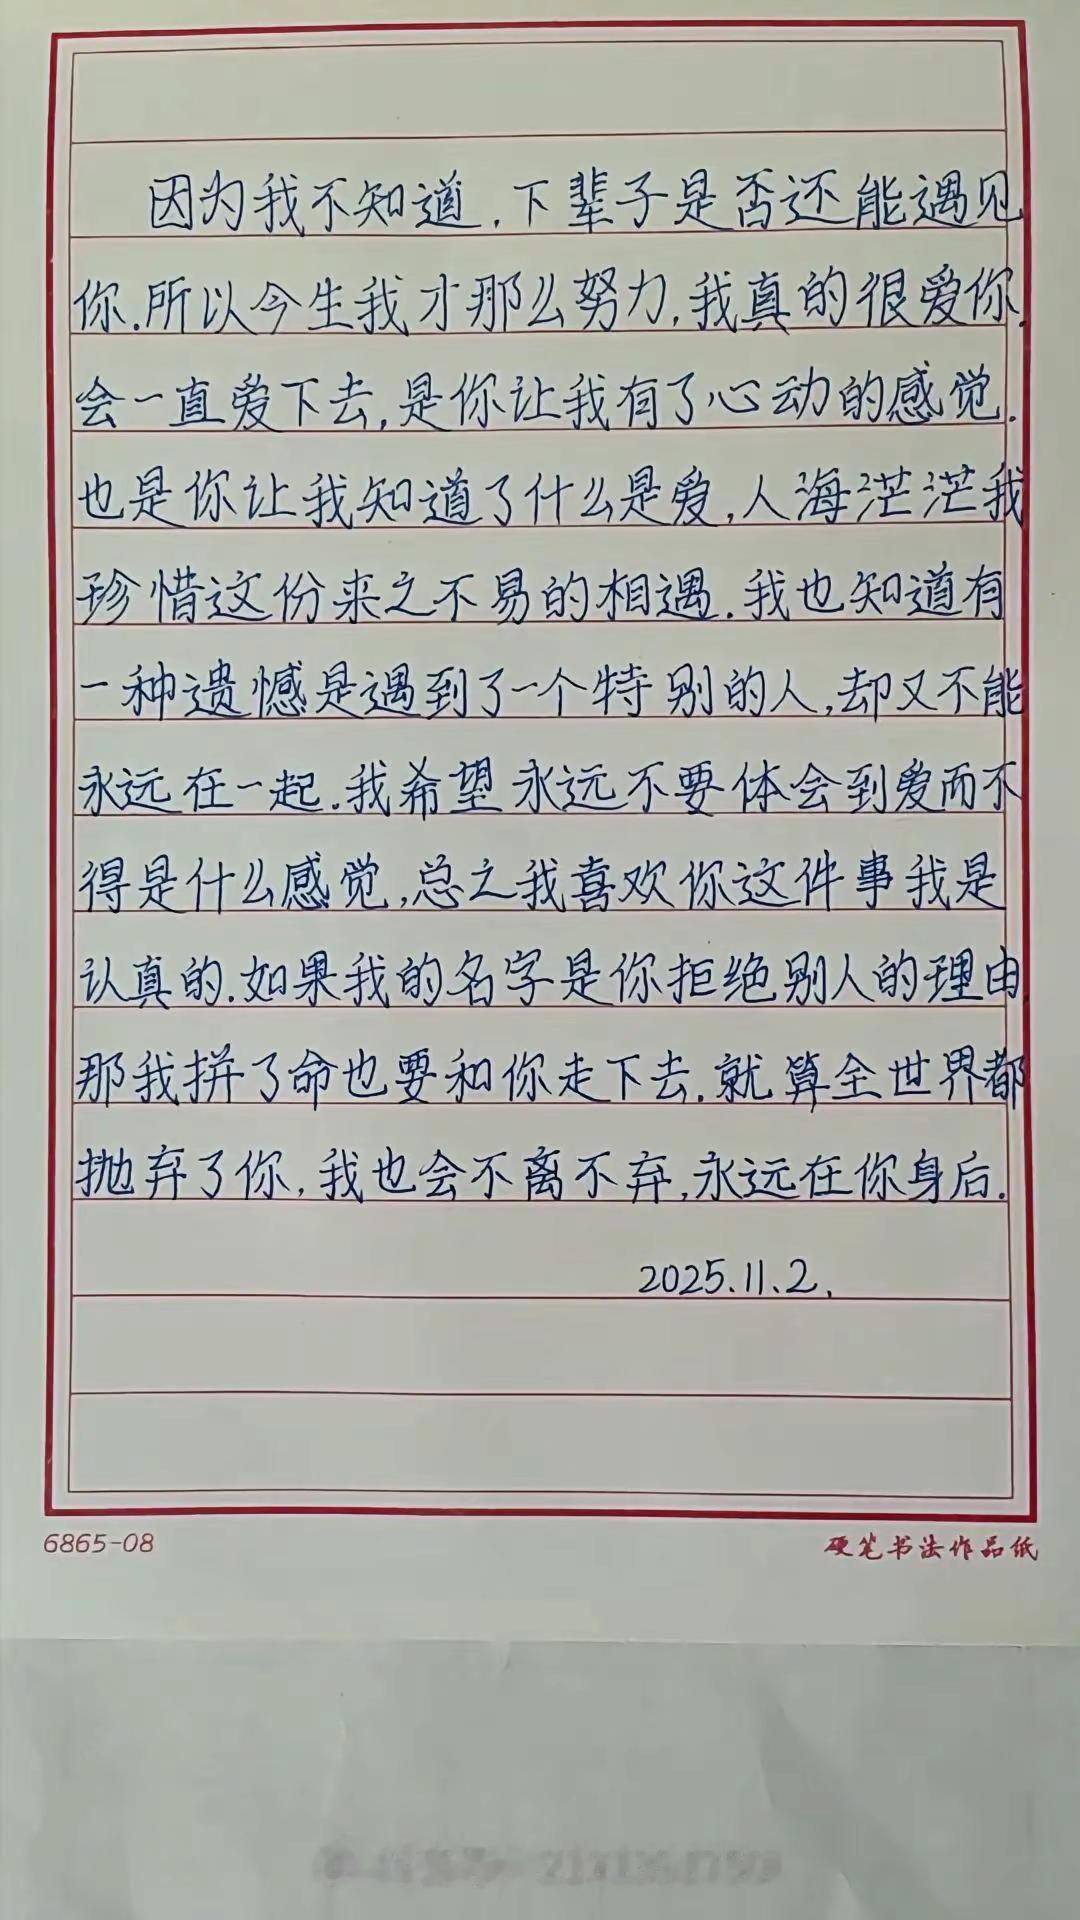 因为我不知道,下辈子是否还能遇见
你.所以今生我才那么努力,我真的很爱你.
会一直爱下去,是你让我有了心动的感觉.
也是你让我知道了什么是爱,人海茫茫我
珍惜这份来之不易的相遇.我也知道有
一种遗憾是遇到了一个特别的人,却又不能
永远在一起.我希望永远不要体会到爱而不
得是什么感觉,总之我喜欢你这件事我是
认真的.如果我的名字是你拒绝别人的理由,
那我拼了命也要和你走下去.就算全世界都
抛弃了你,我也会不离不弃,永远在你身后.
2025.11.2.
6865-08
硬笔书法作品纸